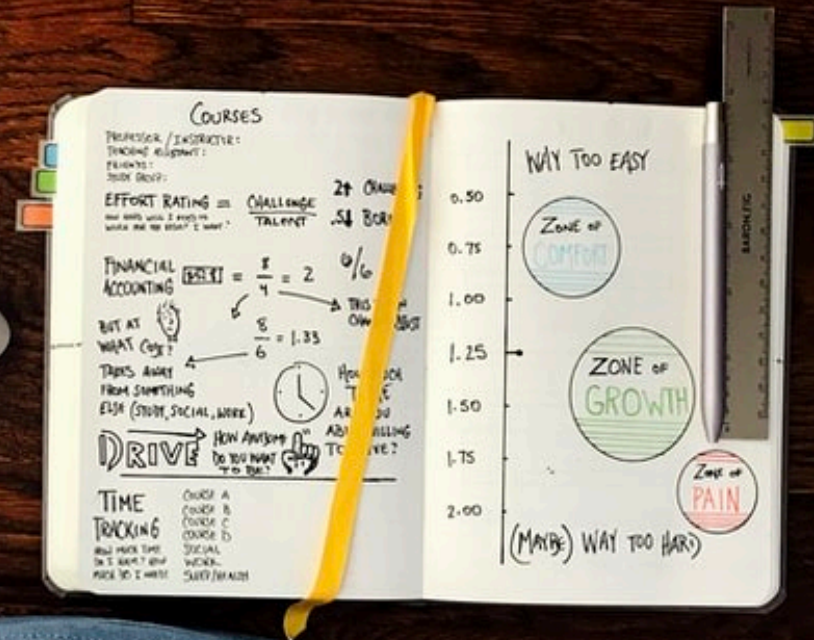 COURSES
PROFESSOR / INSTRUCTOR:
TEACHING ASSISTANT:
FRIENDS:
STUDY GROUP:
EFFORT RATING = CHALLENGE
TALENT
2↑
.5↓
HOW HARD WILL I NEED TO
WORK FOR THE RESULT I WANT?
FINANCIAL
ACCOUNTING = 8/4 = 2
6/6
THIS
BUT AT
WHAT COST?
8/6 = 1.33
TAKES AWAY
FROM SOMETHING
ELSE (STUDY, SOCIAL, WORK)
DRIVE
HOW AWESOME
DO YOU WANT
TO BE?
TIME
TRACKING
HOW MUCH TIME
DO I HAVE? HOW
MUCH DO I WANT?
COURSE A
COURSE B
COURSE C
COURSE D
SOCIAL
WORK
SLEEP/HEALTH
WAY TOO EASY
0.50
0.75
1.00
1.25
1.50
1.75
2.00
ZONE OF
COMFORT
ZONE OF
GROWTH
ZONE OF
PAIN
(MAYBE) WAY TOO HARD)
BARON FIG